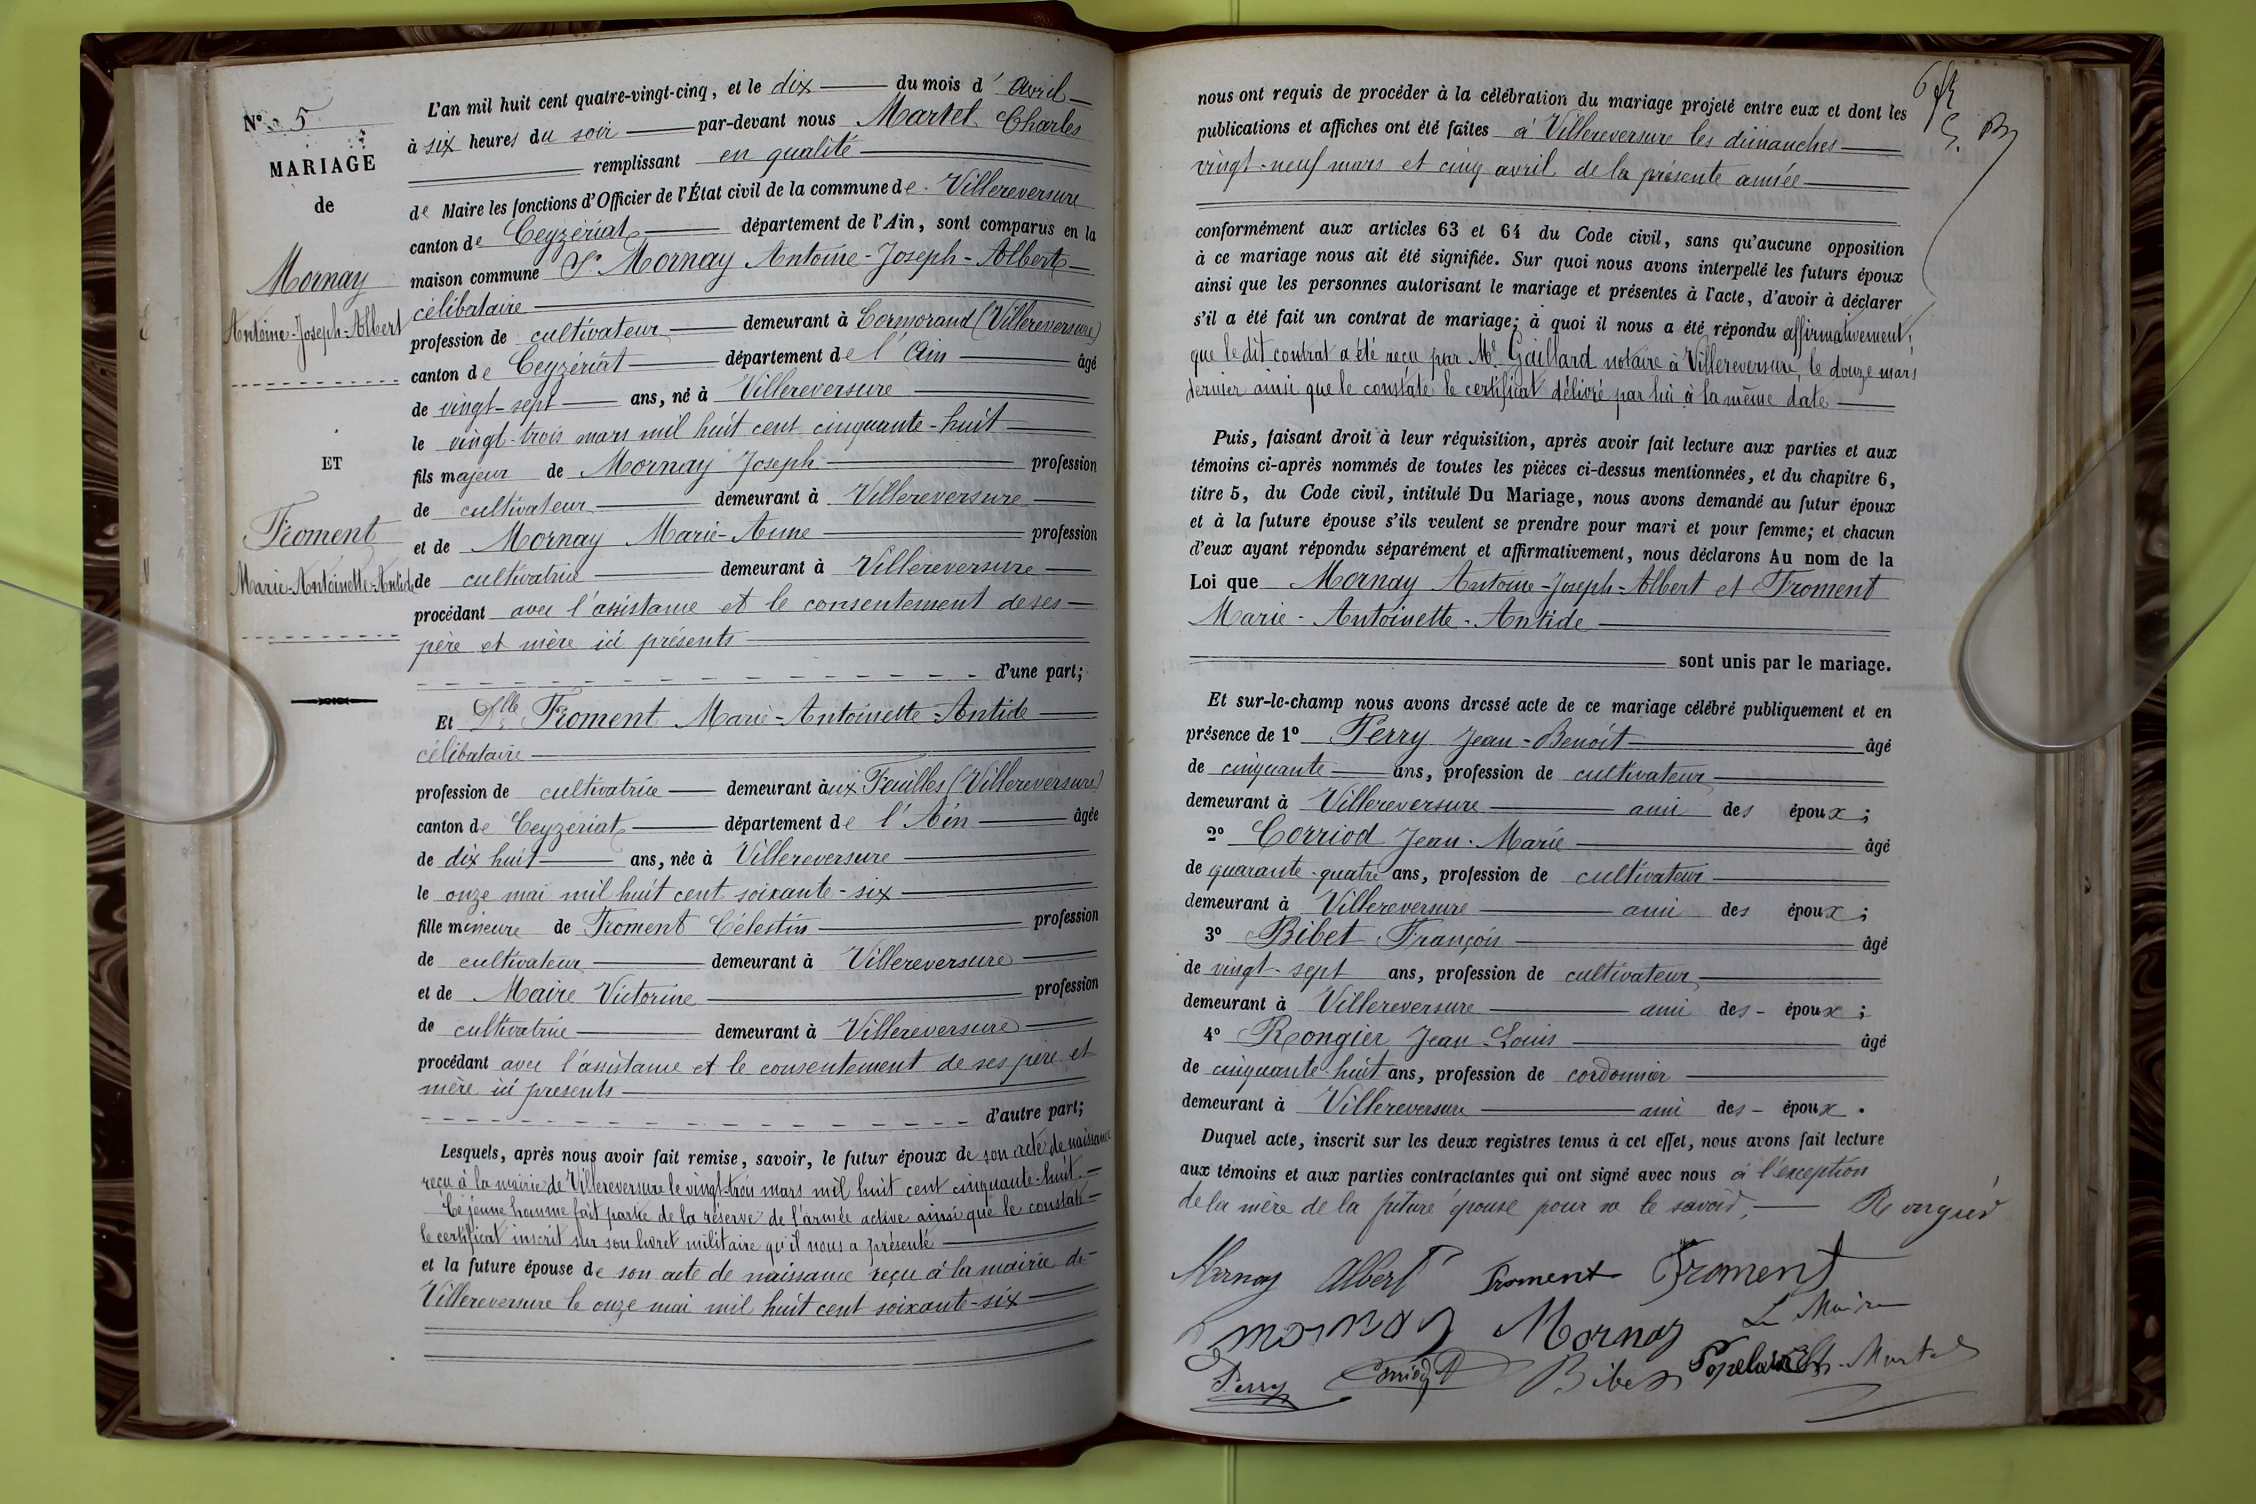 N° 5
MARIAGE
de
Mornay
Antoine-Joseph-Albert
ET
Froment
Marie-Antoinette-Antide
L'an mil huit cent quatre-vingt-cinq, et le dix du mois d'avril
à six heures du soir par-devant nous Martel Charles
remplissant en qualité
de Maire les fonctions d'Officier de l'État civil de la commune de Villereversure
canton de Ceyzériat département de l'Ain, sont comparus en la
maison commune Sr Mornay Antoine-Joseph-Albert
célibataire
profession de cultivateur demeurant à Cormorand (Villereversure)
canton de Ceyzériat département de l'Ain âgé
de vingt-sept ans, né à Villereversure
le vingt-trois mars mil huit cent cinquante-huit
fils majeur de Mornay Joseph profession
de cultivateur demeurant à Villereversure
et de Mornay Marie-Anne profession
de cultivatrice demeurant à Villereversure
procédant avec l'assistance et le consentement de ses
père et mère ici présents
d'une part;
Et Dlle Froment Marie-Antoinette-Antide
célibataire
profession de cultivatrice demeurant aux Feuilles (Villereversure)
canton de Ceyzériat département de l'Ain âgée
de dix huit ans, née à Villereversure
le onze mai mil huit cent soixante-six
fille mineure de Froment Célestin profession
de cultivateur demeurant à Villereversure
et de Maire Victorine profession
de cultivatrice demeurant à Villereversure
procédant avec l'assistance et le consentement de ses père et
mère ici présents
d'autre part;
Lesquels, après nous avoir fait remise, savoir, le futur époux de son acte de naissance
reçu à la mairie de Villereversure le vingt-trois mars mil huit cent cinquante-huit.
Ce jeune homme fait partie de la réserve de l'armée active ainsi que le constate
le certificat inscrit sur son livret militaire qu'il nous a présenté
et la future épouse de son acte de naissance reçu à la mairie de
Villereversure le onze mai mil huit cent soixante-six
nous ont requis de procéder à la célébration du mariage projeté entre eux et dont les
publications et affiches ont été faites à Villereversure les dimanches
vingt-neuf mars et cinq avril de la présente année
conformément aux articles 63 et 64 du Code civil, sans qu'aucune opposition
à ce mariage nous ait été signifiée. Sur quoi nous avons interpellé les futurs époux
ainsi que les personnes autorisant le mariage et présentes à l'acte, d'avoir à déclarer
s'il a été fait un contrat de mariage; à quoi il nous a été répondu affirmativement;
que le dit contrat a été reçu par Me Gaillard notaire à Villereversure, le douze mars
dernier ainsi que le constate le certificat délivré par lui à la même date
Puis, faisant droit à leur réquisition, après avoir fait lecture aux parties et aux
témoins ci-après nommés de toutes les pièces ci-dessus mentionnées, et du chapitre 6,
titre 5, du Code civil, intitulé Du Mariage, nous avons demandé au futur époux
et à la future épouse s'ils veulent se prendre pour mari et pour femme; et chacun
d'eux ayant répondu séparément et affirmativement, nous déclarons Au nom de la
Loi que Mornay Antoine-Joseph-Albert et Froment
Marie-Antoinette-Antide
sont unis par le mariage.
Et sur-le-champ nous avons dressé acte de ce mariage célébré publiquement et en
présence de 1° Perry Jean-Benoit âgé
de cinquante ans, profession de cultivateur
demeurant à Villereversure ami des époux;
2° Corriod Jean-Marie âgé
de quarante-quatre ans, profession de cultivateur
demeurant à Villereversure ami des époux;
3° Bibet François âgé
de vingt-sept ans, profession de cultivateur
demeurant à Villereversure ami des époux;
4° Rongier Jean Louis âgé
de cinquante-huit ans, profession de cordonnier
demeurant à Villereversure ami des époux.
Duquel acte, inscrit sur les deux registres tenus à cet effet, nous avons fait lecture
aux témoins et aux parties contractantes qui ont signé avec nous à l'exception
de la mère de la future épouse pour ne le savoir. Rongier
Mornay Albert Froment Froment
mornay Mornay Le Maire
Perry Corriod Bibet Ch. Martel